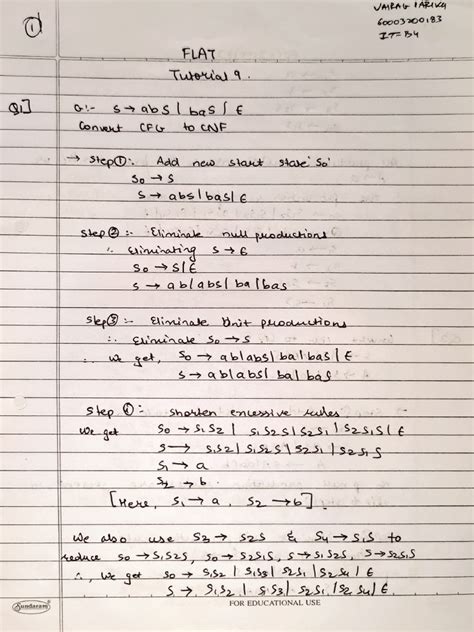 ①
VAIRAG PARIKH
60003200183
IT-B4
FLAT
Tutorial 9.
Q1] G:- S→abS | baS | ϵ
Convert CFG to CNF
→ Step①:- Add new start state 'So'
So → S
S → abS | baS | ϵ
Step② :- Eliminate null productions
∴ Eliminating S → ϵ
So → S | ϵ
S → ab | abS | ba | baS
Step③ :- Eliminate Unit productions
∴ Eliminate So → S
∴ We get, So → ab | abS | ba | baS | ϵ
S → ab | abS | ba | baS
Step ④:- Shorten excessive rules
We get So → S1S2 | S1S2S | S2S1 | S2S1S | ϵ
S → S1S2 | S1S2S | S2S1 | S2S1S
S1 → a
S2 → b
[Here, S1 → a, S2 → b]
We also use S3 → S2S & S4 → S1S to
reduce So → S1S2S, So → S2S1S, S → S1S2S, S → S2S1S
∴, We get So → S1S2 | S1S3 | S2S1 | S2S4 | ϵ
S → S1S2 | S1S3 | S2S1 | S2S4 | ϵ
Sundaram
FOR EDUCATIONAL USE